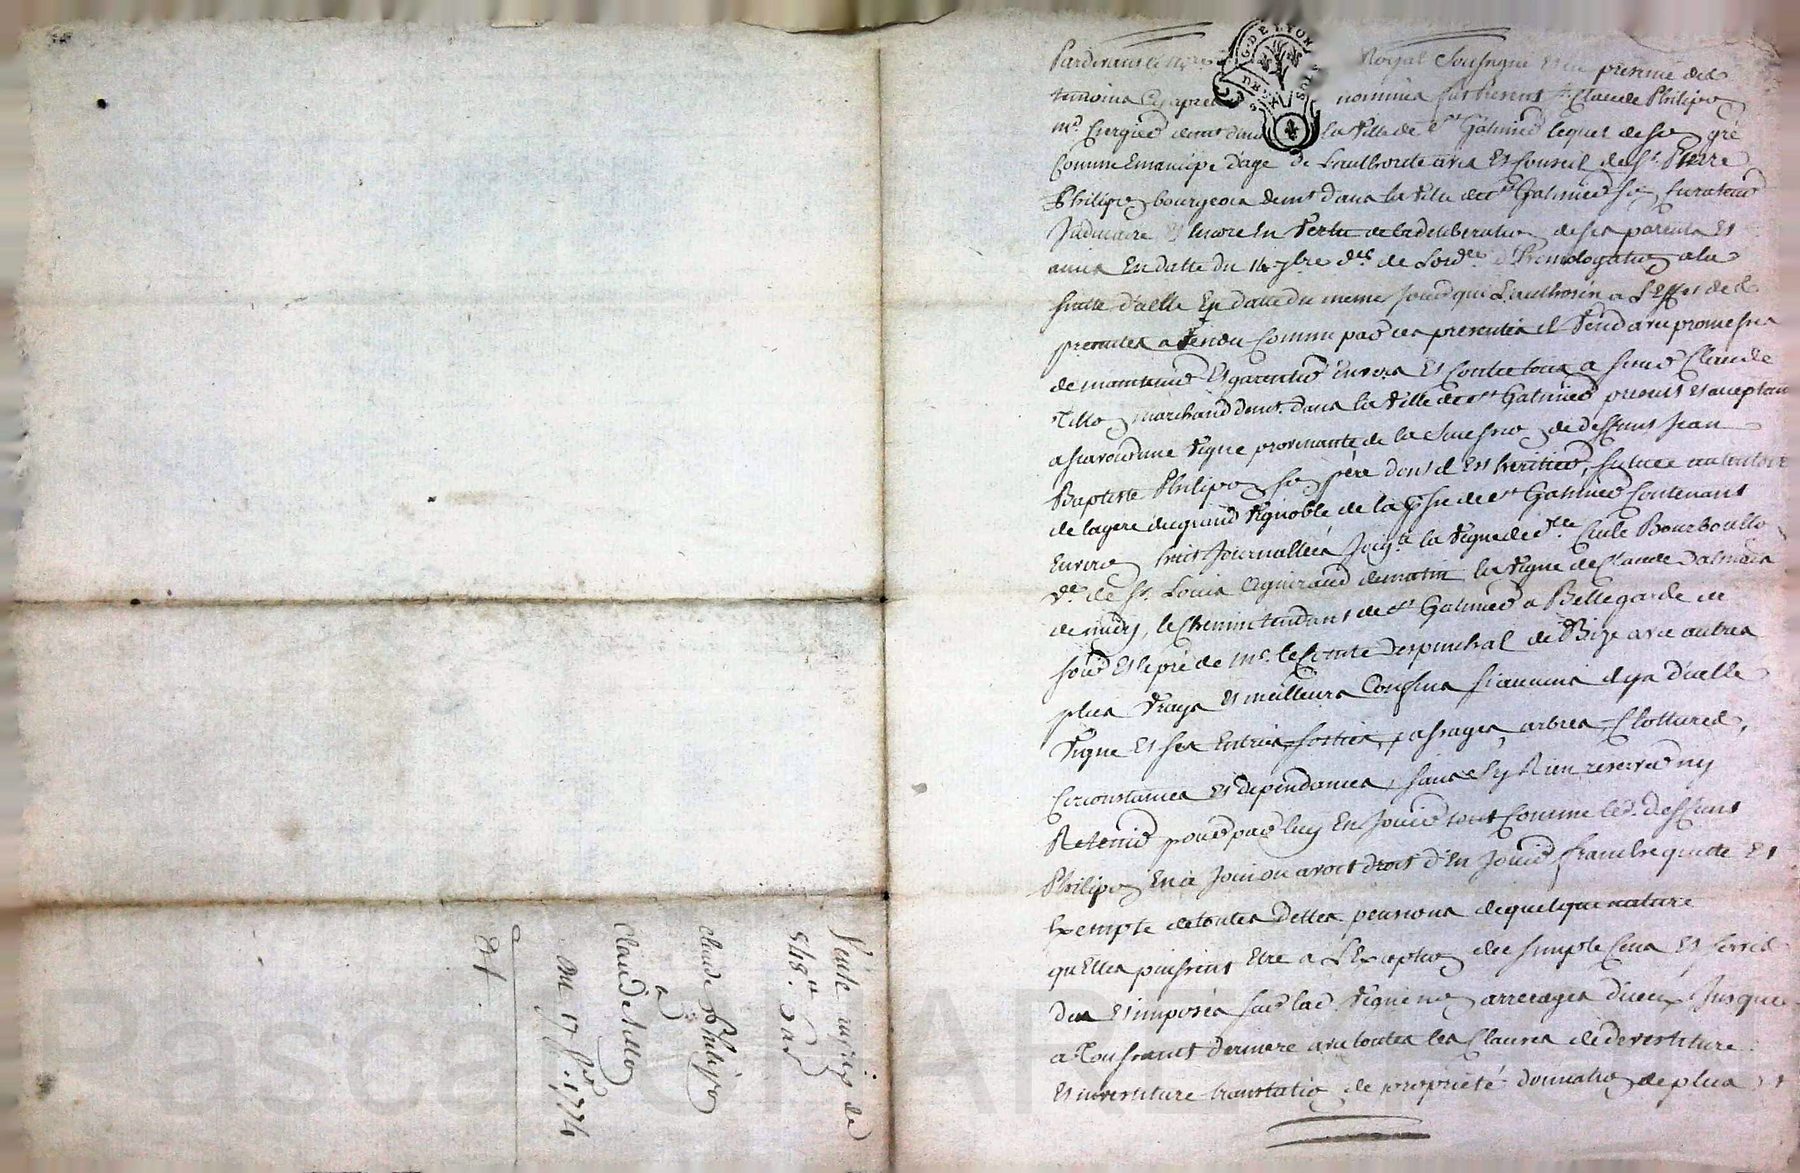 G. DE LYON
Pardevant le no.re Royal Soussigné et en presence des
temoins cy apres nommés fut present Sr. Claude Philipon
md. Cirgier demt. dans la Ville de St. Galmier lequel de son gré
Comme Emancipé d'age de l'authorité avis Et Conseil de Sr. Pierre
Philipon bourgeois demt. dans la Ville de St. Galmier son Curateur
Judiciaire Et encore En Vertu de la deliberation de ses parents Et
amis En datte du 14 7bre de Lord.ce d'homologation a la
suitte d'icelle En datte du meme jour qui L'authorise a L'effet des
presentes a Vendu Comme par ces presentes il Vend avec promesses
de maintenir Et garentir Envers Et Contre tous a sieur Claude
Tillon marchand demt. dans la Ville de St. Galmier present Et acceptant
a sçavoir une Vigne provenante de la succession de deffunt Jean
Baptiste Philipon son père dont il Est héritier, située au territoire
de lagere du grand Vignoble de la psse de St. Galmier Contenant
Environ huit Journallées Joigt. la Vigne de Bourboullon
Ve. de Sr. Louis de matin la Vigne de Claude Dalmais
de midy, le Chemin tendant de St. Galmier a Bellegarde de
soir Et le pré de Mr. le Comte Despinchal de Bize avec autres
plus Vrays Et meilleurs Confins si aucuns il y a d'icelle
Vigne Et ses Entrées sorties, passages, arbres, Clottures,
Circonstances Et dependances, sans s'y Rien reserver ny
Retenir pour par luy En Jouir tout Comme led. deffunt
Philipon En a Joui ou avoit droit d'En Jouir, franche quitte Et
Exempte de toutes Dettes pensions de quelque nature
qu'Elles puissent Etre a L'Exception des simple Cens Et servis
dus Et imposés sur lad. Vigne arrerages d'iceux Jusques
a Toussaint derniere avec toutes les Clauses de devestiture
Et investiture translation de propriété donnation de plus
Vente au prix de
548.tt Par
claude Philipon
a
Claude Tillon
Du 17 7bre. 1774